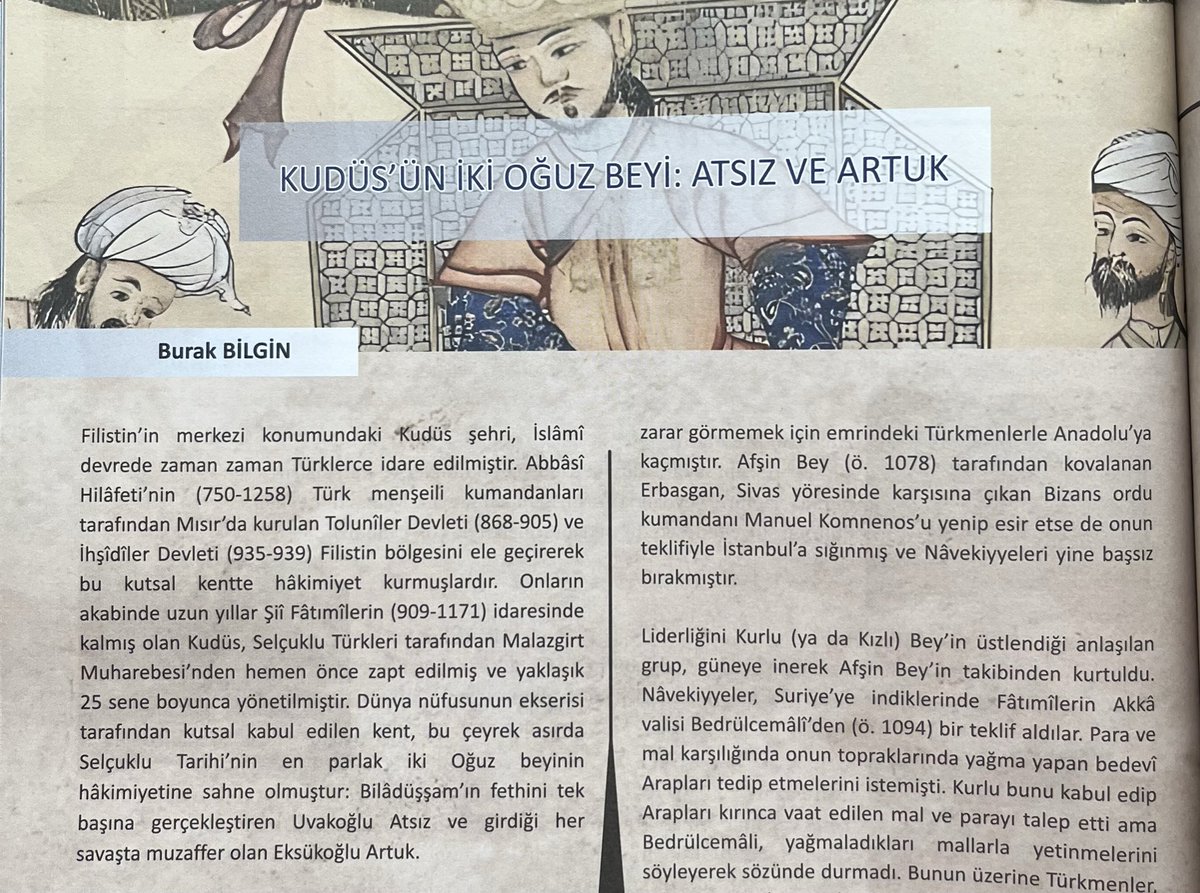 KUDÜS'ÜN İKİ OĞUZ BEYİ: ATSIZ VE ARTUK
Burak BİLGİN
Filistin'in merkezi konumundaki Kudüs şehri, İslâmî
devrede zaman zaman Türklerce idare edilmiştir. Abbâsî
Hilâfeti'nin (750-1258) Türk menşeili kumandanları
tarafından Mısır'da kurulan Tolunîler Devleti (868-905) ve
İhşîdîler Devleti (935-939) Filistin bölgesini ele geçirerek
bu kutsal kentte hâkimiyet kurmuşlardır. Onların
akabinde uzun yıllar Şiî Fâtımîlerin (909-1171) idaresinde
kalmış olan Kudüs, Selçuklu Türkleri tarafından Malazgirt
Muharebesi'nden hemen önce zapt edilmiş ve yaklaşık
25 sene boyunca yönetilmiştir. Dünya nüfusunun ekserisi
tarafından kutsal kabul edilen kent, bu çeyrek asırda
Selçuklu Tarihi'nin en parlak iki Oğuz beyinin
hâkimiyetine sahne olmuştur: Bilâdüşşam'ın fethini tek
başına gerçekleştiren Uvakoğlu Atsız ve girdiği her
savaşta muzaffer olan Eksükoğlu Artuk.
zarar görmemek için emrindeki Türkmenlerle Anadolu'ya
kaçmıştır. Afşin Bey (ö. 1078) tarafından kovalanan
Erbasgan, Sivas yöresinde karşısına çıkan Bizans ordu
kumandanı Manuel Komnenos'u yenip esir etse de onun
teklifiyle İstanbul'a sığınmış ve Nâvekiyyeleri yine başsız
bırakmıştır.
Liderliğini Kurlu (ya da Kızlı) Bey'in üstlendiği anlaşılan
grup, güneye inerek Afşin Bey'in takibinden kurtuldu.
Nâvekiyyeler, Suriye'ye indiklerinde Fâtımîlerin Akkâ
valisi Bedrülcemâlî'den (ö. 1094) bir teklif aldılar. Para ve
mal karşılığında onun topraklarında yağma yapan bedevî
Arapları tedip etmelerini istemişti. Kurlu bunu kabul edip
Arapları kırınca vaat edilen mal ve parayı talep etti ama
Bedrülcemâli, yağmaladıkları mallarla yetinmelerini
söyleyerek sözünde durmadı. Bunun üzerine Türkmenler,